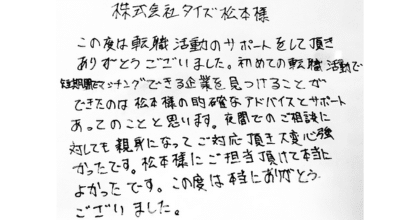 株式会社タイズ松本様
この度は転職活動のサポートをして頂き
ありがとうございました。初めての転職活動で
短期間でマッチングできる企業を見つけることが
できたのは松本様の的確なアドバイスとサポート
あってのことと思います。夜間でのご相談に
対しても親身になってご対応頂き大変心強
かったです。松本様にご担当頂けて本当に
よかったです。この度は本当にありがとう
ございました。